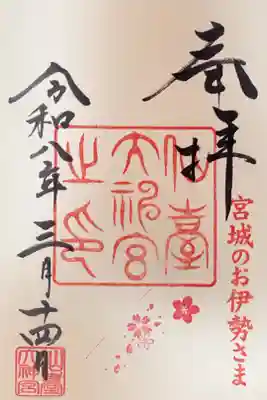 奉拝
宮城のお伊勢さま
仙臺
大神宮
之印
令和八年三月十四日
仙臺
大神宮